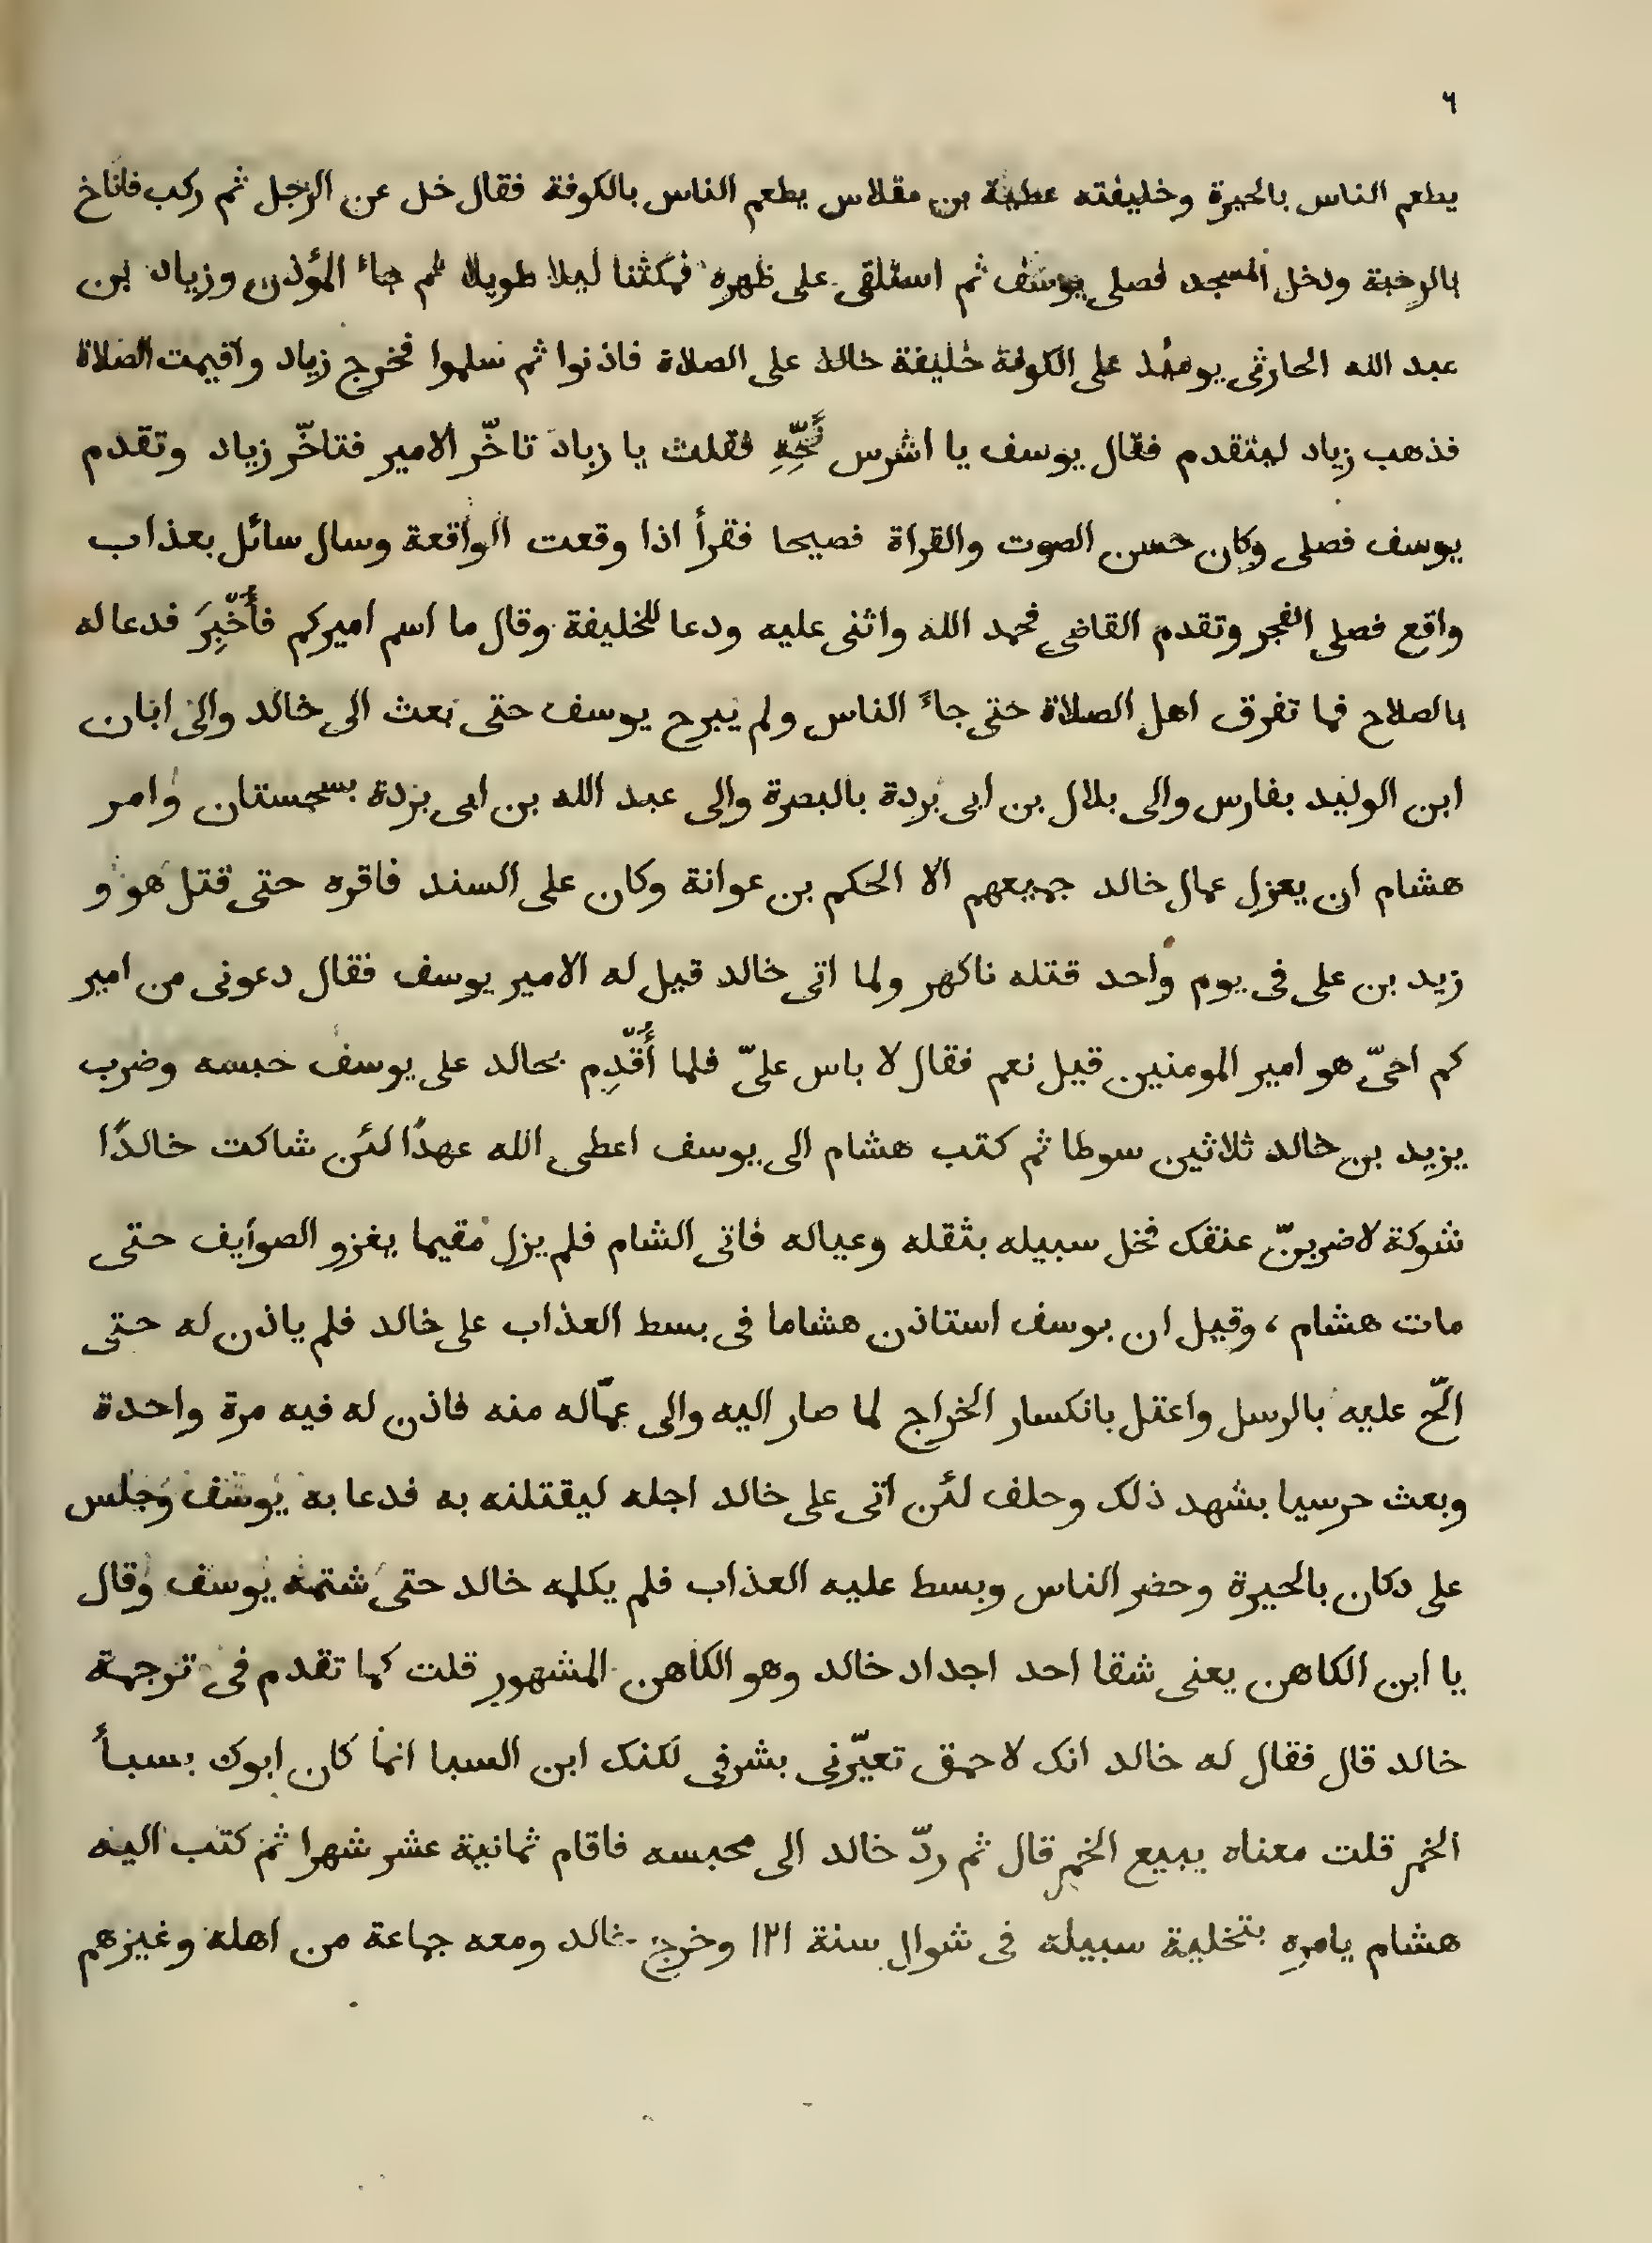 ٦
يطعم الناس بالحيرة وخليفته عطية بن مقلاس يطعم الناس بالكوفة فقال خل عن الرجل ثم ركب فاناخ
بالرحبة ودخل المسجد فصلى يوسف ثم استلقى على ظهره فمكثنا ليلا طويلا ثم جاء المؤذن وزياد بن
عبد الله الحارثى يومئذ على الكوفة خليفة خالد على الصلاة فاذنوا ثم سلموا فخرج زياد واقيمت الصلاة
فذهب زياد ليتقدم فقال يوسف يا اشرس نَحِّهِ فقلت يا زياد تاخّر الامير فتاخّر زياد وتقدم
يوسف فصلى وكان حسن الصوت والقراة فصيحا فقرأ اذا وقعت الواقعة وسال سائل بعذاب
واقع فصلى الفجر وتقدم القاضى فحمد الله واثنى عليه ودعا للخليفة وقال ما اسم اميركم فأُخّبِرَ فدعا له
بالصلاح فما تفرق اهل الصلاة حتى جاءَ الناس ولم يبرح يوسف حتى بعث الى خالد والى ابان
ابن الوليد بفارس والى بلال بن ابى بردة بالبصرة والى عبد الله بن ابى بردة بسجستان وامر
هشام ان يعزل عمال خالد جميعهم الا الحكم بن عوانة وكان على السند فاقره حتى قتل هو و
زيد بن على فى يوم واحد قتله ناكهر ولما اتى خالد قيل له الامير يوسف فقال دعونى من امير
كم احىّ هو امير المومنين قيل نعم فقال لا باس علىّ فلما أُقّدِم بخالد على يوسف حبسه وضرب
يزيد بن خالد ثلاثين سوطا ثم كتب هشام الى يوسف اعطى الله عهدًا لئن شاكت خالدًا
شوكة لاضربنّ عنقك فخل سبيله بثقله وعياله فاتى الشام فلم يزل مقيما يغزو الصوايف حتى
مات هشام ، وقيل ان يوسف استاذن هشاما فى بسط العذاب على خالد فلم ياذن له حتى
الّح عليه بالرسل واعتل بانكسار الخراج لما صار اليه والى عمّاله منه فاذن له فيه مرة واحدة
وبعث حرسيا يشهد ذلك وحلف لئن اتى على خالد اجله ليقتلنه به فدعا به يوسف وجلس
على دكان بالحيرة وحضر الناس وبسط عليه العذاب فلم يكلمه خالد حتى شتمه يوسف وقال
يا ابن الكاهن يعنى شقا احد اجداد خالد وهو الكاهن المشهور قلت كما تقدم فى ترجمة
خالد قال فقال له خالد انك لاحمق تعيّرنى بشرفى لكنك ابن السبا انما كان ابوك يسبأ
الخمر قلت معناه يبيع الخمر قال ثم ردّ خالد الى محبسه فاقام ثمانية عشر شهرا ثم كتب اليه
هشام يامره بتخلية سبيله فى شوال سنة ١٢١ وخرج خالد ومعه جماعة من اهله وغيرهم